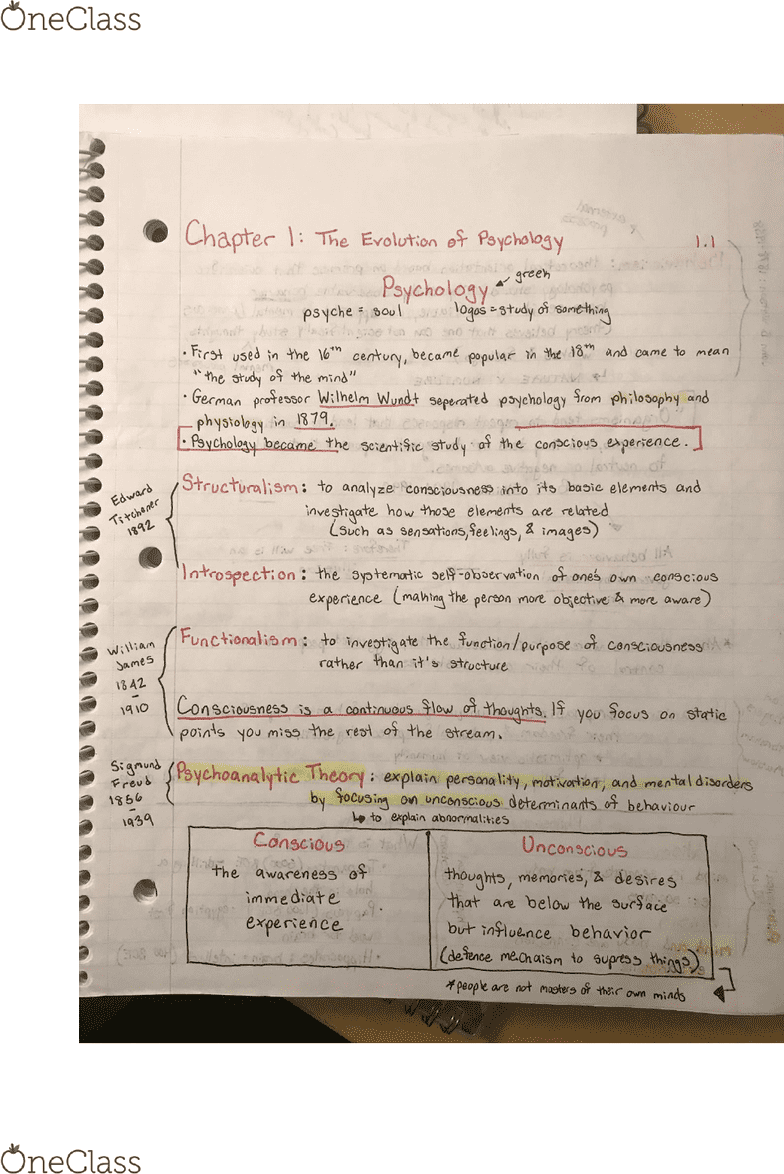 OneClass
Chapter 1: The Evolution of Psychology 1.1
green
Psychology
psyche = soul logos = study of something
• First used in the 16th century, became popular in the 18th and came to mean
"the study of the mind"
• German professor Wilhelm Wundt seperated psychology from philosophy and
physiology in 1879.
• Psychology became the scientific study of the conscious experience.
Edward
Titchener
1892
Structuralism: to analyze consciousness into its basic elements and
investigate how those elements are related
(such as sensations, feelings, & images)
Introspection: the systematic self-observation of one's own conscious
experience (making the person more objective & more aware)
William
James
1842
-
1910
Functionalism: to investigate the function/purpose of consciousness
rather than it's structure
Consciousness is a continuous flow of thoughts. If you focus on static
points you miss the rest of the stream.
Sigmund
Freud
1856
-
1939
Psychoanalytic Theory: explain personality, motivation, and mental disorders
by focusing on unconscious determinants of behaviour
↳ to explain abnormalities
Conscious
the awareness of
immediate
experience
Unconscious
thoughts, memories, & desires
that are below the surface
but influence behavior
(defence mechaism to supress things)
*people are not masters of their own minds
OneClass